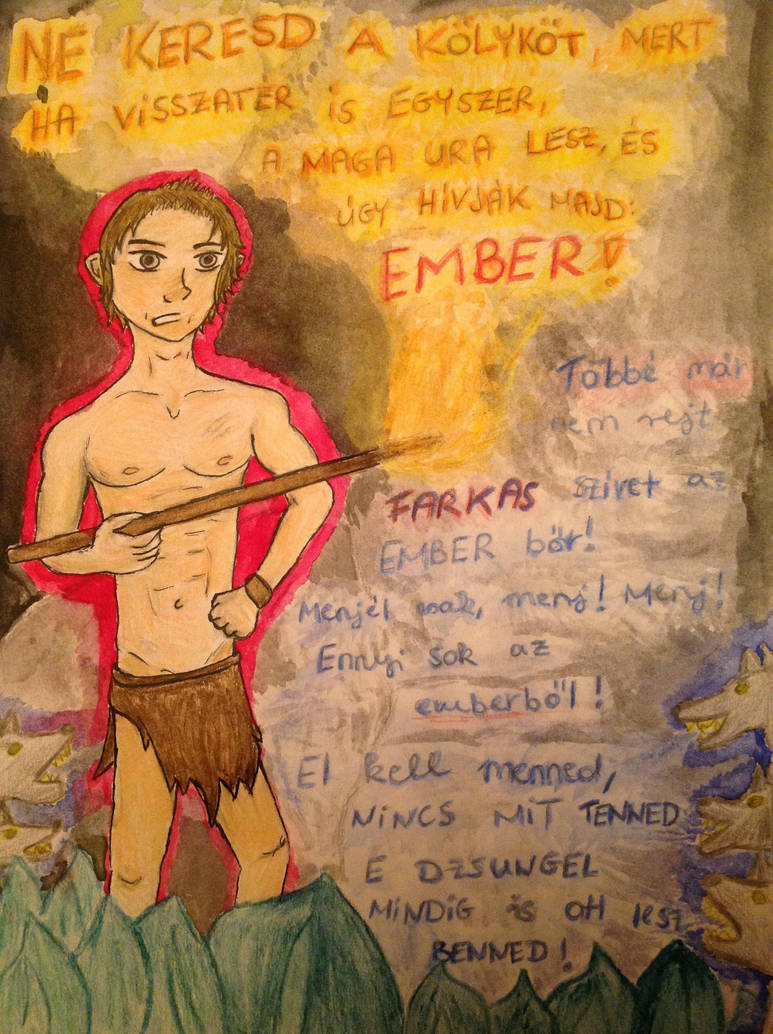 NE KERESD A KÖLYKÖT, MERT
HA VISSZATÉR IS EGYSZER,
A MAGA URA LESZ, ÉS
ÚGY HÍVJÁK MAJD:
EMBER!
Többé már
nem rejt
FARKAS szívet az
EMBER bőr!
Menjél csak, menj! Menj!
Ennyi sok az
emberből!
El kell menned,
NINCS MIT TENNED
E DZSUNGEL
MINDIG is ott lesz
BENNED!